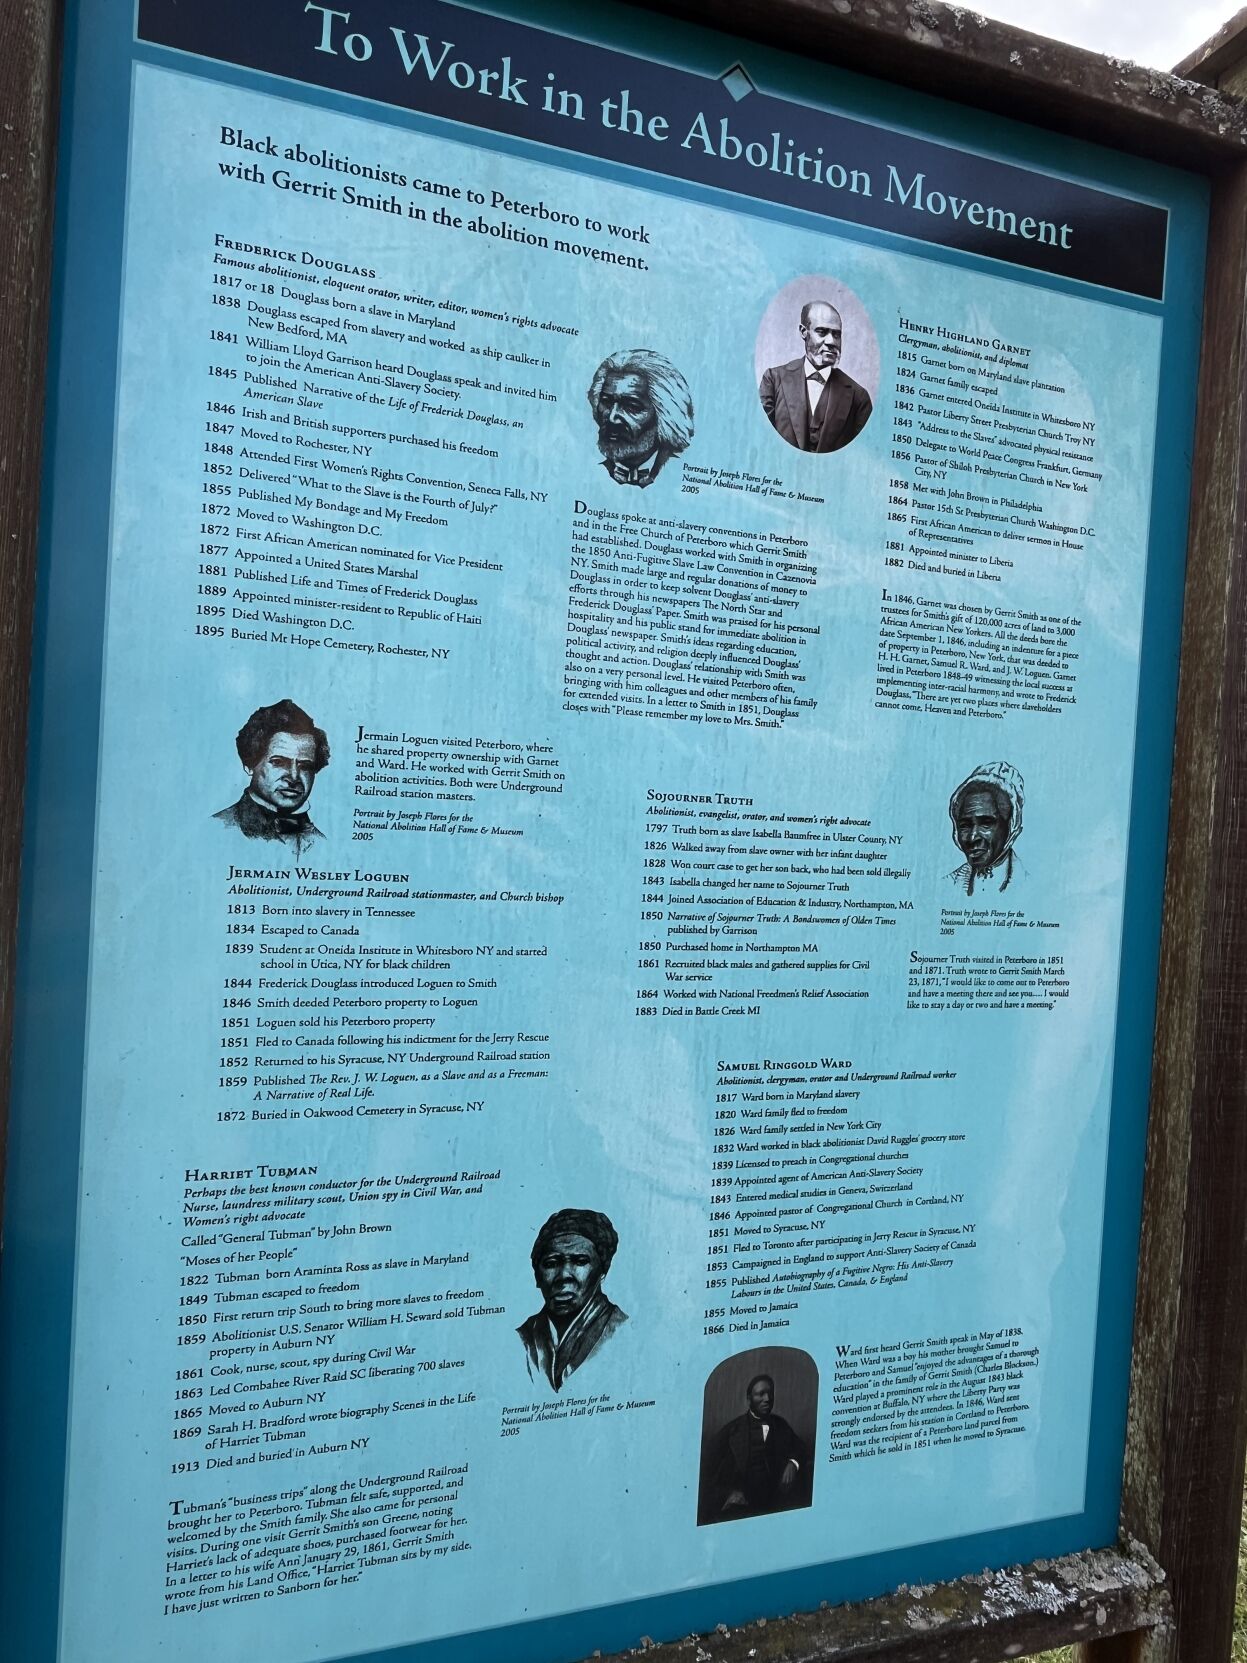 To Work in the Abolition Movement
Black abolitionists came to Peterboro to work
with Gerrit Smith in the abolition movement.
FREDERICK DOUGLASS
Famous abolitionist, eloquent orator, writer, editor, women's rights advocate
1817 or 18 Douglass born a slave in Maryland
1838 Douglass escaped from slavery and worked as ship caulker in
New Bedford, MA
1841 William Lloyd Garrison heard Douglass speak and invited him
to join the American Anti-Slavery Society.
1845 Published Narrative of the Life of Frederick Douglass, an
American Slave
1846 Irish and British supporters purchased his freedom
1847 Moved to Rochester, NY
1848 Attended First Women's Rights Convention, Seneca Falls, NY
1852 Delivered "What to the Slave is the Fourth of July?"
1855 Published My Bondage and My Freedom
1872 Moved to Washington D.C.
1872 First African American nominated for Vice President
1877 Appointed a United States Marshal
1881 Published Life and Times of Frederick Douglass
1889 Appointed minister-resident to Republic of Haiti
1895 Died Washington D.C.
1895 Buried Mt Hope Cemetery, Rochester, NY
Portrait by Joseph Flores for the
National Abolition Hall of Fame & Museum
2005
Douglass spoke at anti-slavery conventions in Peterboro
and in the Free Church of Peterboro which Gerrit Smith
had established. Douglass worked with Smith in organizing
the 1850 Anti-Fugitive Slave Law Convention in Cazenovia
NY. Smith made large and regular donations of money to
Douglass in order to keep solvent Douglass' anti-slavery
efforts through his newspapers The North Star and
Frederick Douglass' Paper. Smith was praised for his personal
hospitality and his public stand for immediate abolition in
Douglass' newspaper. Smith's ideas regarding education,
political activity, and religion deeply influenced Douglass'
thought and action. Douglass' relationship with Smith was
also on a very personal level. He visited Peterboro often,
bringing with him colleagues and other members of his family
for extended visits. In a letter to Smith in 1851, Douglass
closes with "Please remember my love to Mrs. Smith."
HENRY HIGHLAND GARNET
Clergyman, abolitionist, and diplomat
1815 Garnet born on Maryland slave plantation
1824 Garnet family escaped
1836 Garnet entered Oneida Institute in Whitesboro NY
1842 Pastor Liberty Street Presbyterian Church Troy NY
1843 "Address to the Slaves" advocated physical resistance
1850 Delegate to World Peace Congress Frankfurt, Germany
1856 Pastor of Shiloh Presbyterian Church in New York
City, NY
1858 Met with John Brown in Philadelphia
1864 Pastor 15th St Presbyterian Church Washington D.C.
1865 First African American to deliver sermon in House
of Representatives
1881 Appointed minister to Liberia
1882 Died and buried in Liberia
In 1846, Garnet was chosen by Gerrit Smith as one of the
trustees for Smith's gift of 120,000 acres of land to 3,000
African American New Yorkers. All the deeds bore the
date September 1, 1846, including an indenture for a piece
of property in Peterboro, New York, that was deeded to
H. H. Garnet, Samuel R. Ward, and J. W. Loguen. Garnet
lived in Peterboro 1848-49 witnessing the local success at
implementing inter-racial harmony, and wrote to Frederick
Douglass, "There are yet two places where slaveholders
cannot come, Heaven and Peterboro."
Jermain Loguen visited Peterboro, where
he shared property ownership with Garnet
and Ward. He worked with Gerrit Smith on
abolition activities. Both were Underground
Railroad station masters.
Portrait by Joseph Flores for the
National Abolition Hall of Fame & Museum
2005
JERMAIN WESLEY LOGUEN
Abolitionist, Underground Railroad stationmaster, and Church bishop
1813 Born into slavery in Tennessee
1834 Escaped to Canada
1839 Student at Oneida Institute in Whitesboro NY and started
school in Utica, NY for black children
1844 Frederick Douglass introduced Loguen to Smith
1846 Smith deeded Peterboro property to Loguen
1851 Loguen sold his Peterboro property
1851 Fled to Canada following his indictment for the Jerry Rescue
1852 Returned to his Syracuse, NY Underground Railroad station
1859 Published The Rev. J. W. Loguen, as a Slave and as a Freeman:
A Narrative of Real Life.
1872 Buried in Oakwood Cemetery in Syracuse, NY
SOJOURNER TRUTH
Abolitionist, evangelist, orator, and women's right advocate
1797 Truth born as slave Isabella Baumfree in Ulster County, NY
1826 Walked away from slave owner with her infant daughter
1828 Won court case to get her son back, who had been sold illegally
1843 Isabella changed her name to Sojourner Truth
1844 Joined Association of Education & Industry, Northampton, MA
1850 Narrative of Sojourner Truth: A Bondswomen of Olden Times
published by Garrison
1850 Purchased home in Northampton MA
1861 Recruited black males and gathered supplies for Civil
War service
1864 Worked with National Freedmen's Relief Association
1883 Died in Battle Creek MI
Portrait by Joseph Flores for the
National Abolition Hall of Fame & Museum
2005
Sojourner Truth visited in Peterboro in 1851
and 1871. Truth wrote to Gerrit Smith March
23, 1871, "I would like to come out to Peterboro
and have a meeting there and see you.... I would
like to stay a day or two and have a meeting."
HARRIET TUBMAN
Perhaps the best known conductor for the Underground Railroad
Nurse, laundress military scout, Union spy in Civil War, and
Women's right advocate
Called "General Tubman" by John Brown
"Moses of her People"
1822 Tubman born Araminta Ross as slave in Maryland
1849 Tubman escaped to freedom
1850 First return trip South to bring more slaves to freedom
1859 Abolitionist U.S. Senator William H. Seward sold Tubman
property in Auburn NY
1861 Cook, nurse, scout, spy during Civil War
1863 Led Combahee River Raid SC liberating 700 slaves
1865 Moved to Auburn NY
1869 Sarah H. Bradford wrote biography Scenes in the Life
of Harriet Tubman
1913 Died and buried in Auburn NY
Portrait by Joseph Flores for the
National Abolition Hall of Fame & Museum
2005
Tubman's "business trips" along the Underground Railroad
brought her to Peterboro. Tubman felt safe, supported, and
welcomed by the Smith family. She also came for personal
visits. During one visit Gerrit Smith's son Greene, noting
Harriet's lack of adequate shoes, purchased footwear for her.
In a letter to his wife Ann January 29, 1861, Gerrit Smith
wrote from his Land Office, "Harriet Tubman sits by my side.
I have just written to Sanborn for her."
SAMUEL RINGGOLD WARD
Abolitionist, clergyman, orator and Underground Railroad worker
1817 Ward born in Maryland slavery
1820 Ward family fled to freedom
1826 Ward family settled in New York City
1832 Ward worked in black abolitionist David Ruggles' grocery store
1839 Licensed to preach in Congregational churches
1839 Appointed agent of American Anti-Slavery Society
1843 Entered medical studies in Geneva, Switzerland
1846 Appointed pastor of Congregational Church in Cortland, NY
1851 Moved to Syracuse, NY
1851 Fled to Toronto after participating in Jerry Rescue in Syracuse, NY
1853 Campaigned in England to support Anti-Slavery Society of Canada
1855 Published Autobiography of a Fugitive Negro: His Anti-Slavery
Labours in the United States, Canada, & England
1855 Moved to Jamaica
1866 Died in Jamaica
Ward first heard Gerrit Smith speak in May of 1838.
When Ward was a boy his mother brought Samuel to
Peterboro and Samuel "enjoyed the advantages of a thorough
education" in the family of Gerrit Smith (Charles Blockson.)
Ward played a prominent role in the August 1843 black
convention at Buffalo, NY where the Liberty Party was
strongly endorsed by the attendees. In 1846, Ward sent
freedom seekers from his station in Cortland to Peterboro.
Ward was the recipient of a Peterboro land parcel from
Smith which he sold in 1851 when he moved to Syracuse.